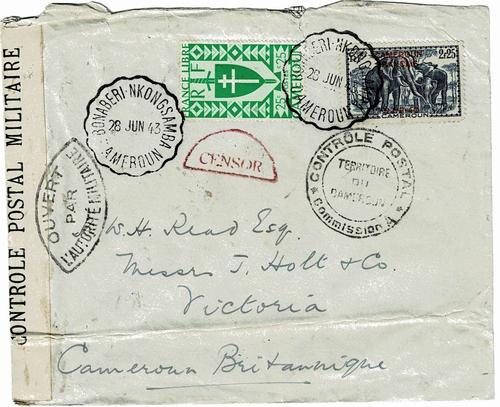 CONTROLE POSTAL MILITAIRE
OUVERT
PAR
L'AUTORITÉ MILITAIRE
BONABERI-NKONGSAMBA
28 JUN 43
CAMEROUN
FRANCE LIBRE
RF
CAMEROUN
25
BONABERI-NKONGSAMBA
28 JUN 43
CAMEROUN
CAMEROUN
2F25
CENSOR
CONTRÔLE POSTAL
TERRITOIRE
DU
CAMEROUN
Commission A
W. H. Read Esq.
Messrs J. Holt & Co.
Victoria
Cameroun Britannique